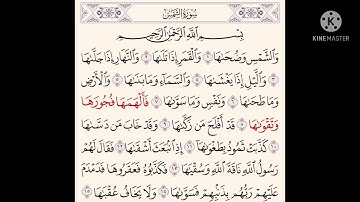 سُورَةُ الشَّمْسِ
بِسْمِ اللَّهِ الرَّحْمَٰنِ الرَّحِيمِ
وَالشَّمْسِ وَضُحَىٰهَا ۝١ وَالْقَمَرِ إِذَا تَلَىٰهَا ۝٢ وَالنَّهَارِ إِذَا جَلَّىٰهَا
۝٣ وَاللَّيْلِ إِذَا يَغْشَىٰهَا ۝٤ وَالسَّمَاءِ وَمَا بَنَىٰهَا ۝٥ وَالْأَرْضِ
وَمَا طَحَىٰهَا ۝٦ وَنَفْسٍ وَمَا سَوَّىٰهَا ۝٧ فَأَلْهَمَهَا فُجُورَهَا
وَتَقْوَىٰهَا ۝٨ قَدْ أَفْلَحَ مَن زَكَّىٰهَا ۝٩ وَقَدْ خَابَ مَن دَسَّىٰهَا
۝١٠ كَذَّبَتْ ثَمُودُ بِطَغْوَىٰهَا ۝١١ إِذِ انبَعَثَ أَشْقَىٰهَا ۝١٢ فَقَالَ لَهُمْ
رَسُولُ اللَّهِ نَاقَةَ اللَّهِ وَسُقْيَىٰهَا ۝١٣ فَكَذَّبُوهُ فَعَقَرُوهَا فَدَمْدَمَ
عَلَيْهِمْ رَبُّهُم بِذَنبِهِمْ فَسَوَّىٰهَا ۝١٤ وَلَا يَخَافُ عُقْبَىٰهَا ۝١٥
Made With
KINEMASTER